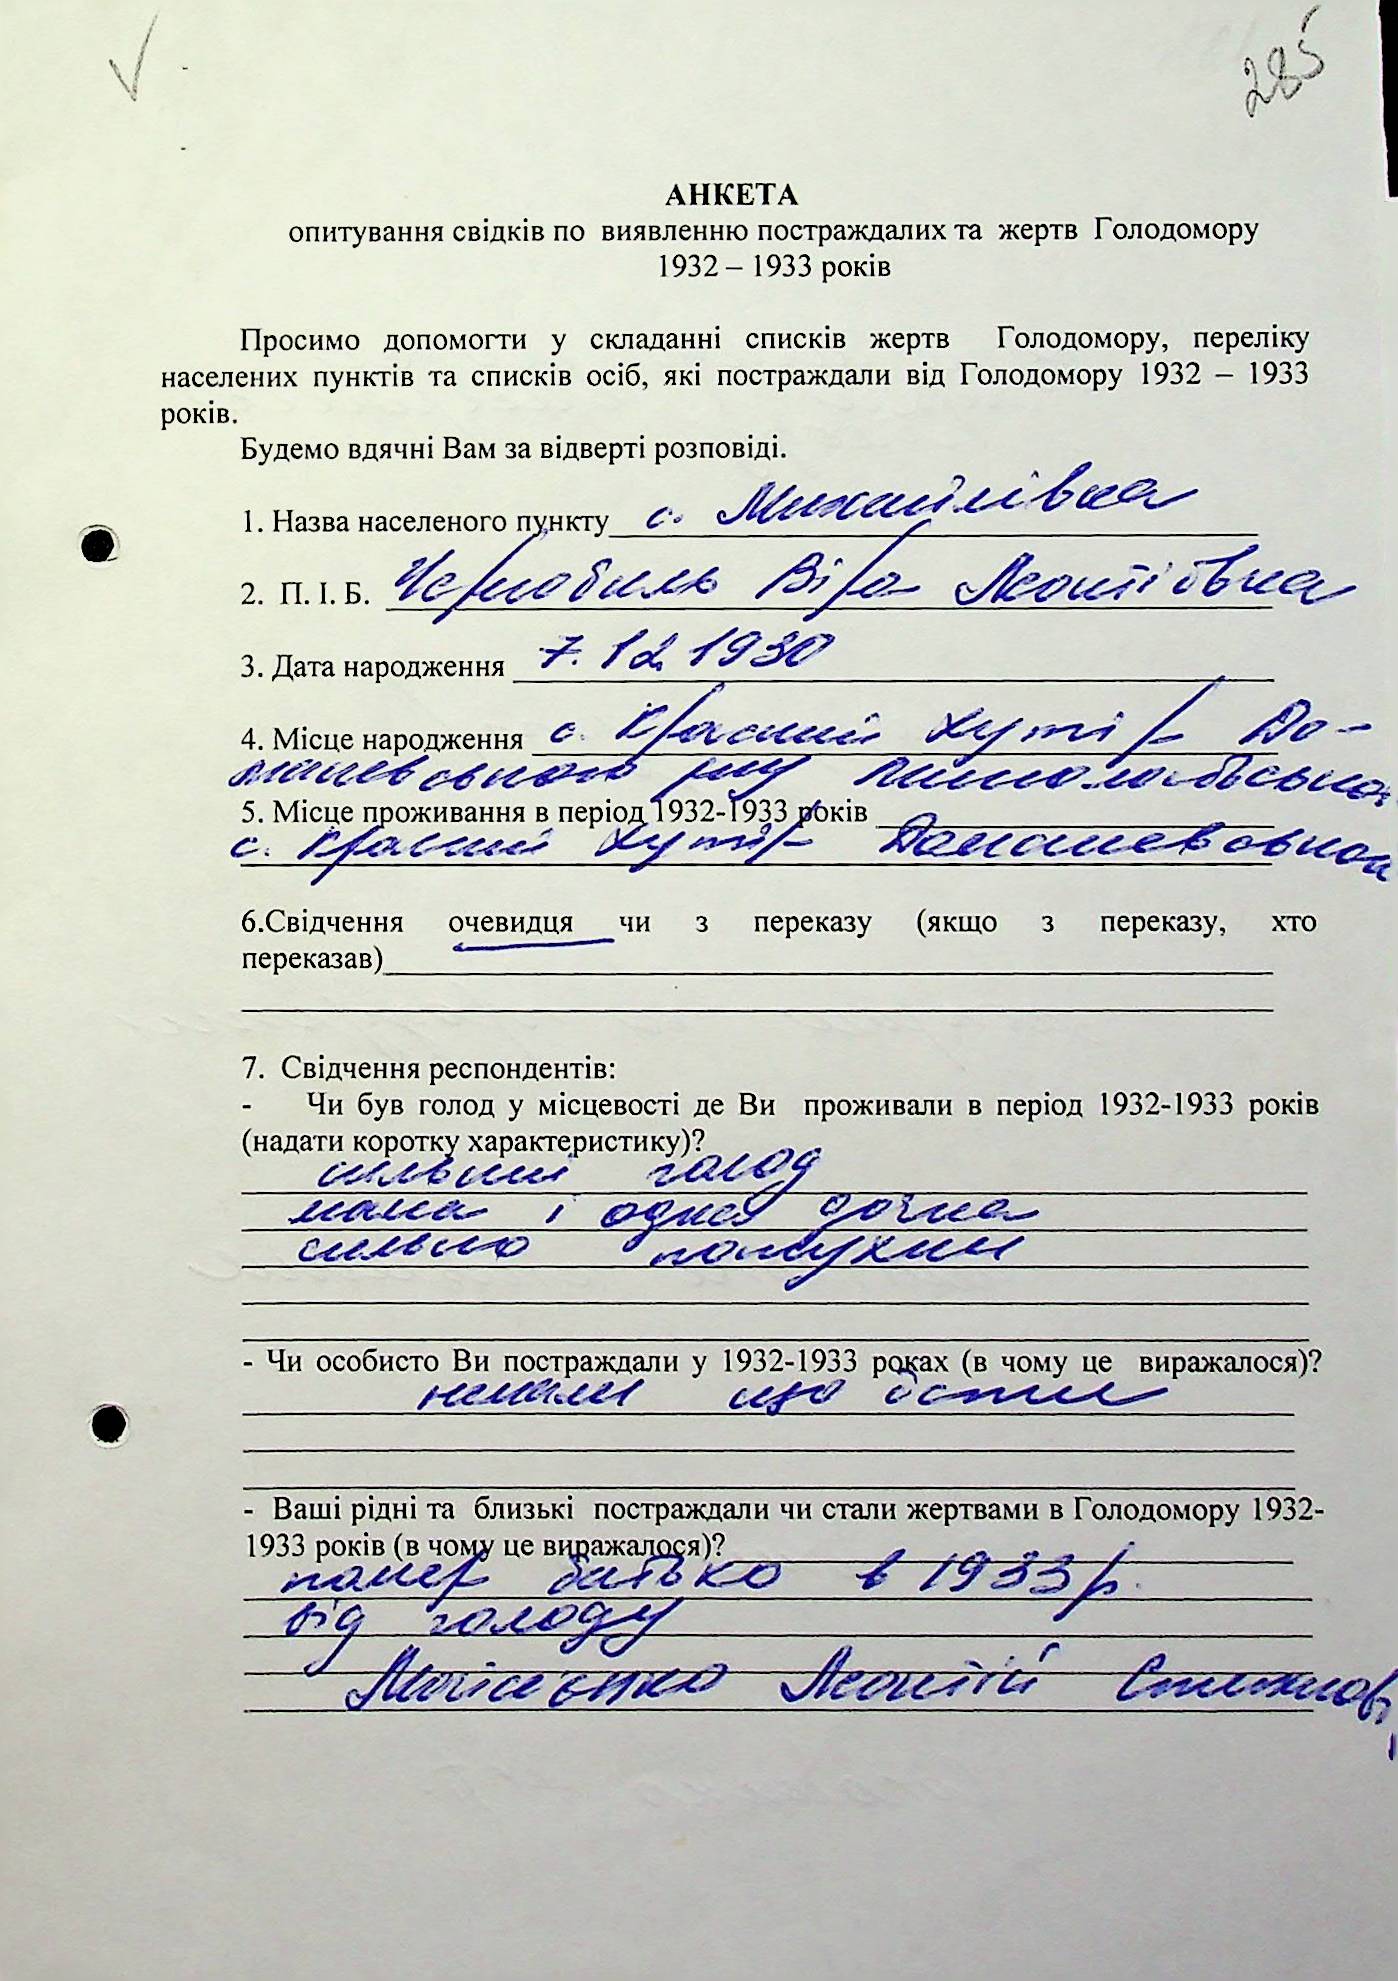 285
АНКЕТА
опитування свідків по виявленню постраждалих та жертв Голодомору
1932 – 1933 років
Просимо допомогти у складанні списків жертв Голодомору, переліку
населених пунктів та списків осіб, які постраждали від Голодомору 1932 – 1933
років.
Будемо вдячні Вам за відверті розповіді.
1. Назва населеного пункту с. Михайлівка
2. П. І. Б. Чернобиль Віра Леонтіївна
3. Дата народження 7.12.1930
4. Місце народження с. Красний Хутір До-
5. Місце проживання в період 1932-1933 років
с. Красний Хутір
6.Свідчення очевидця чи з переказу (якщо з переказу, хто
переказав)
7. Свідчення респондентів:
- Чи був голод у місцевості де Ви проживали в період 1932-1933 років
(надати коротку характеристику)?
сильний голод
мама і одна дочка
сильно попухли
- Чи особисто Ви постраждали у 1932-1933 роках (в чому це виражалося)?
нікали що їсти
- Ваші рідні та близькі постраждали чи стали жертвами в Голодомору 1932-
1933 років (в чому це виражалося)?
помер батько в 1933 р.
від голоду
Леонтій